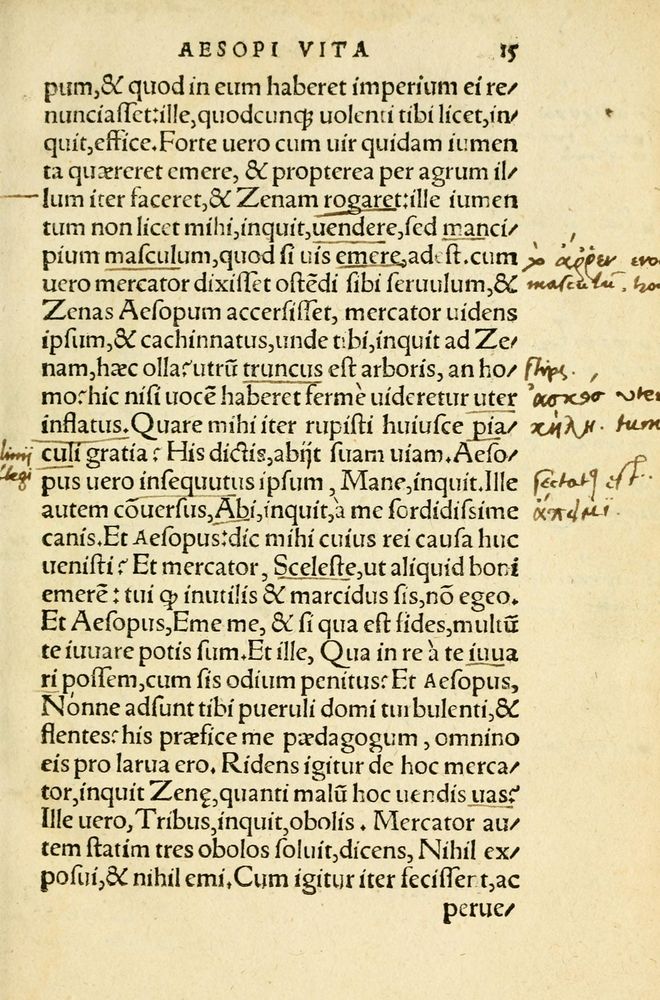 AESOPI VITA 15
pum,& quod in eum haberet imperium ei re/
nunciasset:ille,quodcunq; uolenti tibi licet,in/
quit,effice.Forte uero cum uir quidam iumen
ta quæreret emere, & propterea per agrum il/
lum iter faceret,& Zenam rogaret:ille iumen
tum non licet mihi,inquit,uendere,sed manci/
pium masculum,quod si uis emere,adest.cum
uero mercator dixisset ostēdi sibi seruulum,&
masculū.
Zenas Aesopum accersisset, mercator uidens
ipsum,& cachinnatus,unde tibi,inquit ad Ze/
nam,hæc olla?utrū truncus est arboris, an ho/
stips.
mo?hic nisi uocē haberet fermè uideretur uter
ἀσκὸσ uter
inflatus.Quare mihi iter rupisti huiusce pia/
culi gratia? His dictis,abijt suam uiam.Aeso/
pus uero insequutus ipsum , Mane,inquit.Ille
autem cōuersus,Abi,inquit,à me sordidissime
canis.Et Aesopus:dic mihi cuius rei causa huc
uenisti? Et mercator, Sceleste,ut aliquid boni
emerē: tui q; inutilis & marcidus sis,nō egeo.
Et Aesopus,Eme me, & si qua est fides,multū
te iuuare potis sum.Et ille, Qua in re à te iuua
ri possem,cum sis odium penitus? Et Aesopus,
Nónne adsunt tibi pueruli domi turbulenti,&
flentes? his præfice me pædagogum , omnino
eis pro larua ero. Ridens igitur de hoc merca/
tor,inquit Zenę,quanti malū hoc uendis uas?
Ille uero, Tribus,inquit,obolis . Mercator au/
tem statim tres obolos soluit,dicens, Nihil ex/
posui,& nihil emi.Cum igitur iter fecissent,ac
perue/